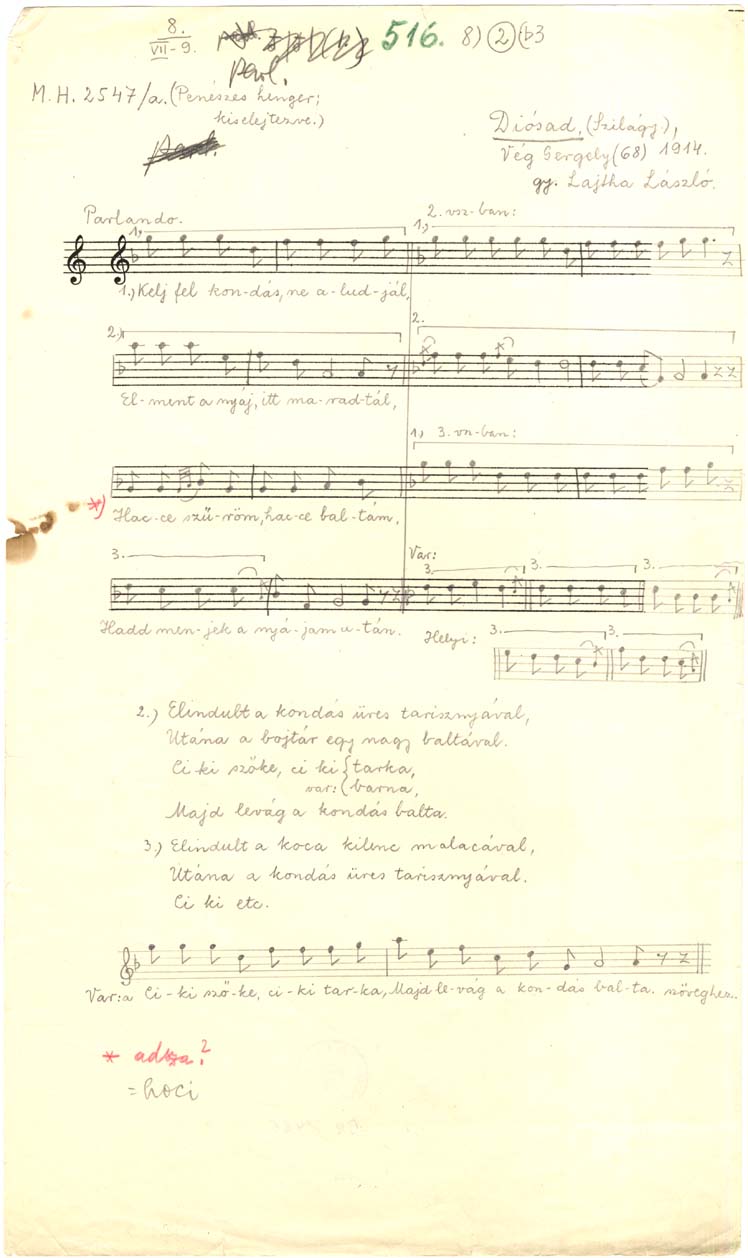 8.
VII-9.
516. 8) 2 (b3
Parl.
M. H. 2547/a. (Penészes henger;
kiselejtezve.)
Diósad, (Szilágy.),
Vég Gergely (68) 1914.
gy. Lajtha László.
Parlando.
2. vsz-ban:
1.) 1.)
1.) Kelj fel kon-dás, ne a-lud-jál,
2.) 2.
El-ment a nyáj, itt ma-rad-tál,
1.) 3. vsz-ban:
*) Hac-ce szű-röm, hac-ce bal-tám,
3. Var: 3. 3. 3.
Hadd men-jek a nyá-jam u-tán. Helyi: 3. 3.
2.) Elindult a kondás üres tarisznyával,
Utána a bojtár egy nagy baltával.
Ci ki szőke, ci ki { tarka,
var: ( barna,
Majd levág a kondás balta.
3.) Elindult a koca kilenc malacával,
Utána a kondás üres tarisznyával.
Ci ki etc.
Var: a Ci-ki ző-ke, ci-ki tar-ka, Majd le-vág a kon-dás bal-ta. szöveghez.
* adsza?
= hoci